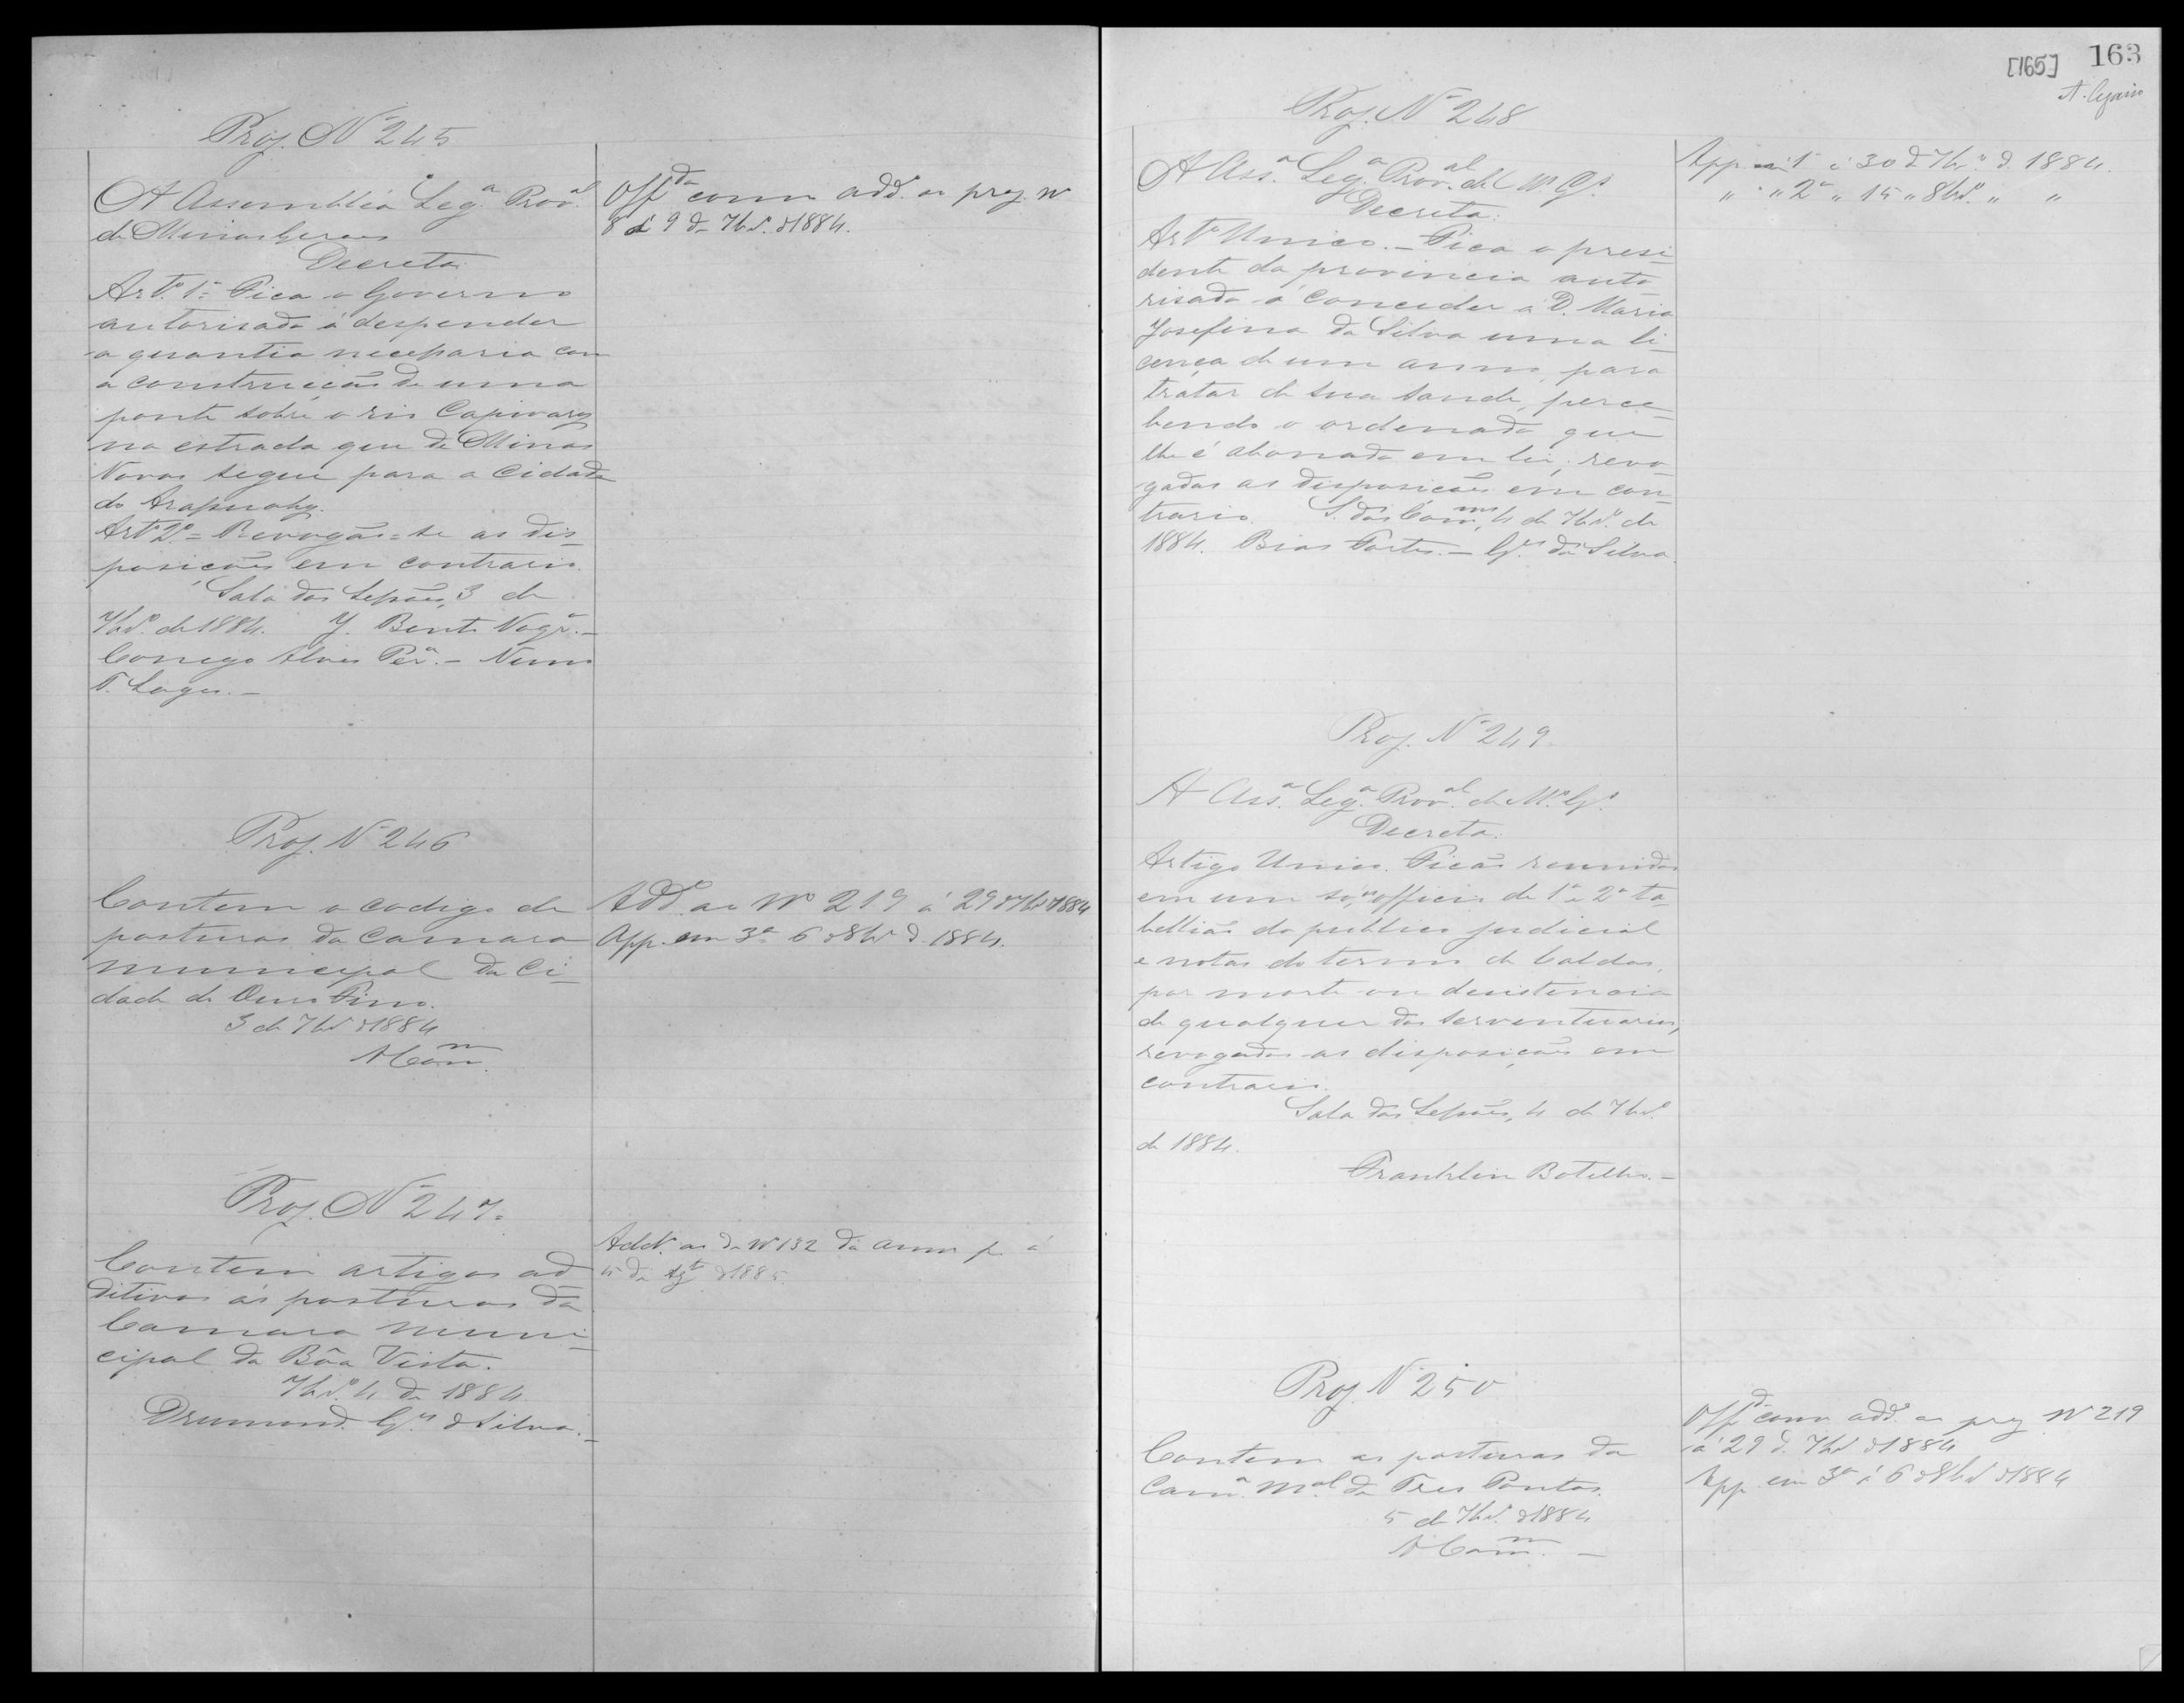 Proj. Nº 245
A Assembléa Leg.ª Prov.al
de Minas Geraes
Decreta:
Art.º 1º Fica o Governo
autorisado á despender
a quantia necessaria com
a construcção de uma
ponte sobre o rio Capivary
na estrada que de Minas
Novas segue para a cidade
do Arassuahy.
Artº 2º = Revogão-se as dis-
posições em contrario.
Sala das Sessões, 3 de
7br.º de 1884. J. Bento Nogr.ª -
Conego Alves Per.ª - Nuno
T. Lages. -
Off.da como add. ao proj. Nº
8 á 9 de 7br.º d 1884.
Proj. Nº 246
Contem o codigo de
posturas da Camara
municipal da Ci-
dade de Ouro Fino.
3 de 7br.º d 1884
A Com.m
Add.º ao Nº 219 á 29 d 7br.º d 1884
App. em 3ª 6 d 8br.º d 1884.
Proj. Nº 247
Contem artigos ad
ditivos ás posturas da
Camara muni-
cipal da Bôa Vista.
7br.º 4 de 1884.
Drumond. G.es d Silva. -
Add. ao de Nº 132 do anno p. á
5 de Ag.to d 1885.
[165] 163
Proj. Nº 248
A Ass.ª Leg.ª Prov.al de Mº Gs.
Decreta:
Artº Unico. - Fica o presi-
dente da provincia auto
risado á conceder á D. Maria
Josefina da Silva uma li-
cença de um anno, para
tratar de sua saude, perce-
bendo o ordenado que
lhe é abonado em lei; revo-
gadas as disposições em con-
trario. S. das Com.ms, 4 de 7br.º de
1884. Bias Fortes. - G.es da Silva.
App. em 1ª á 30 d 7br.º d. 1884.
" " 2ª " 15 " 8br.º " "
Proj. Nº 249
A Ass.ª Leg.ª Prov.al de Mº Gs.
Decreta:
Artigo Unico. Ficão reunidos
em um só, os officios de 1º e 2º ta-
bellião do publico judicial
e notas do termo de Caldas,
por morte ou desistencia
de qualquer dos serventuarios,
revogadas as disposições em
contrario.
Sala das Sessões, 4 de 7br.º
de 1884.
Franklin Botelho. -
Proj. Nº 250
Contem as posturas da
Cam.ª M.al de Tres Pontas.
5 de 7br.º d 1884
A Com.m -
Off.da como add. ao proj Nº 219
á 29 d. 7br.º d 1884
App. em 3ª á 6 d 8br.º d 1884